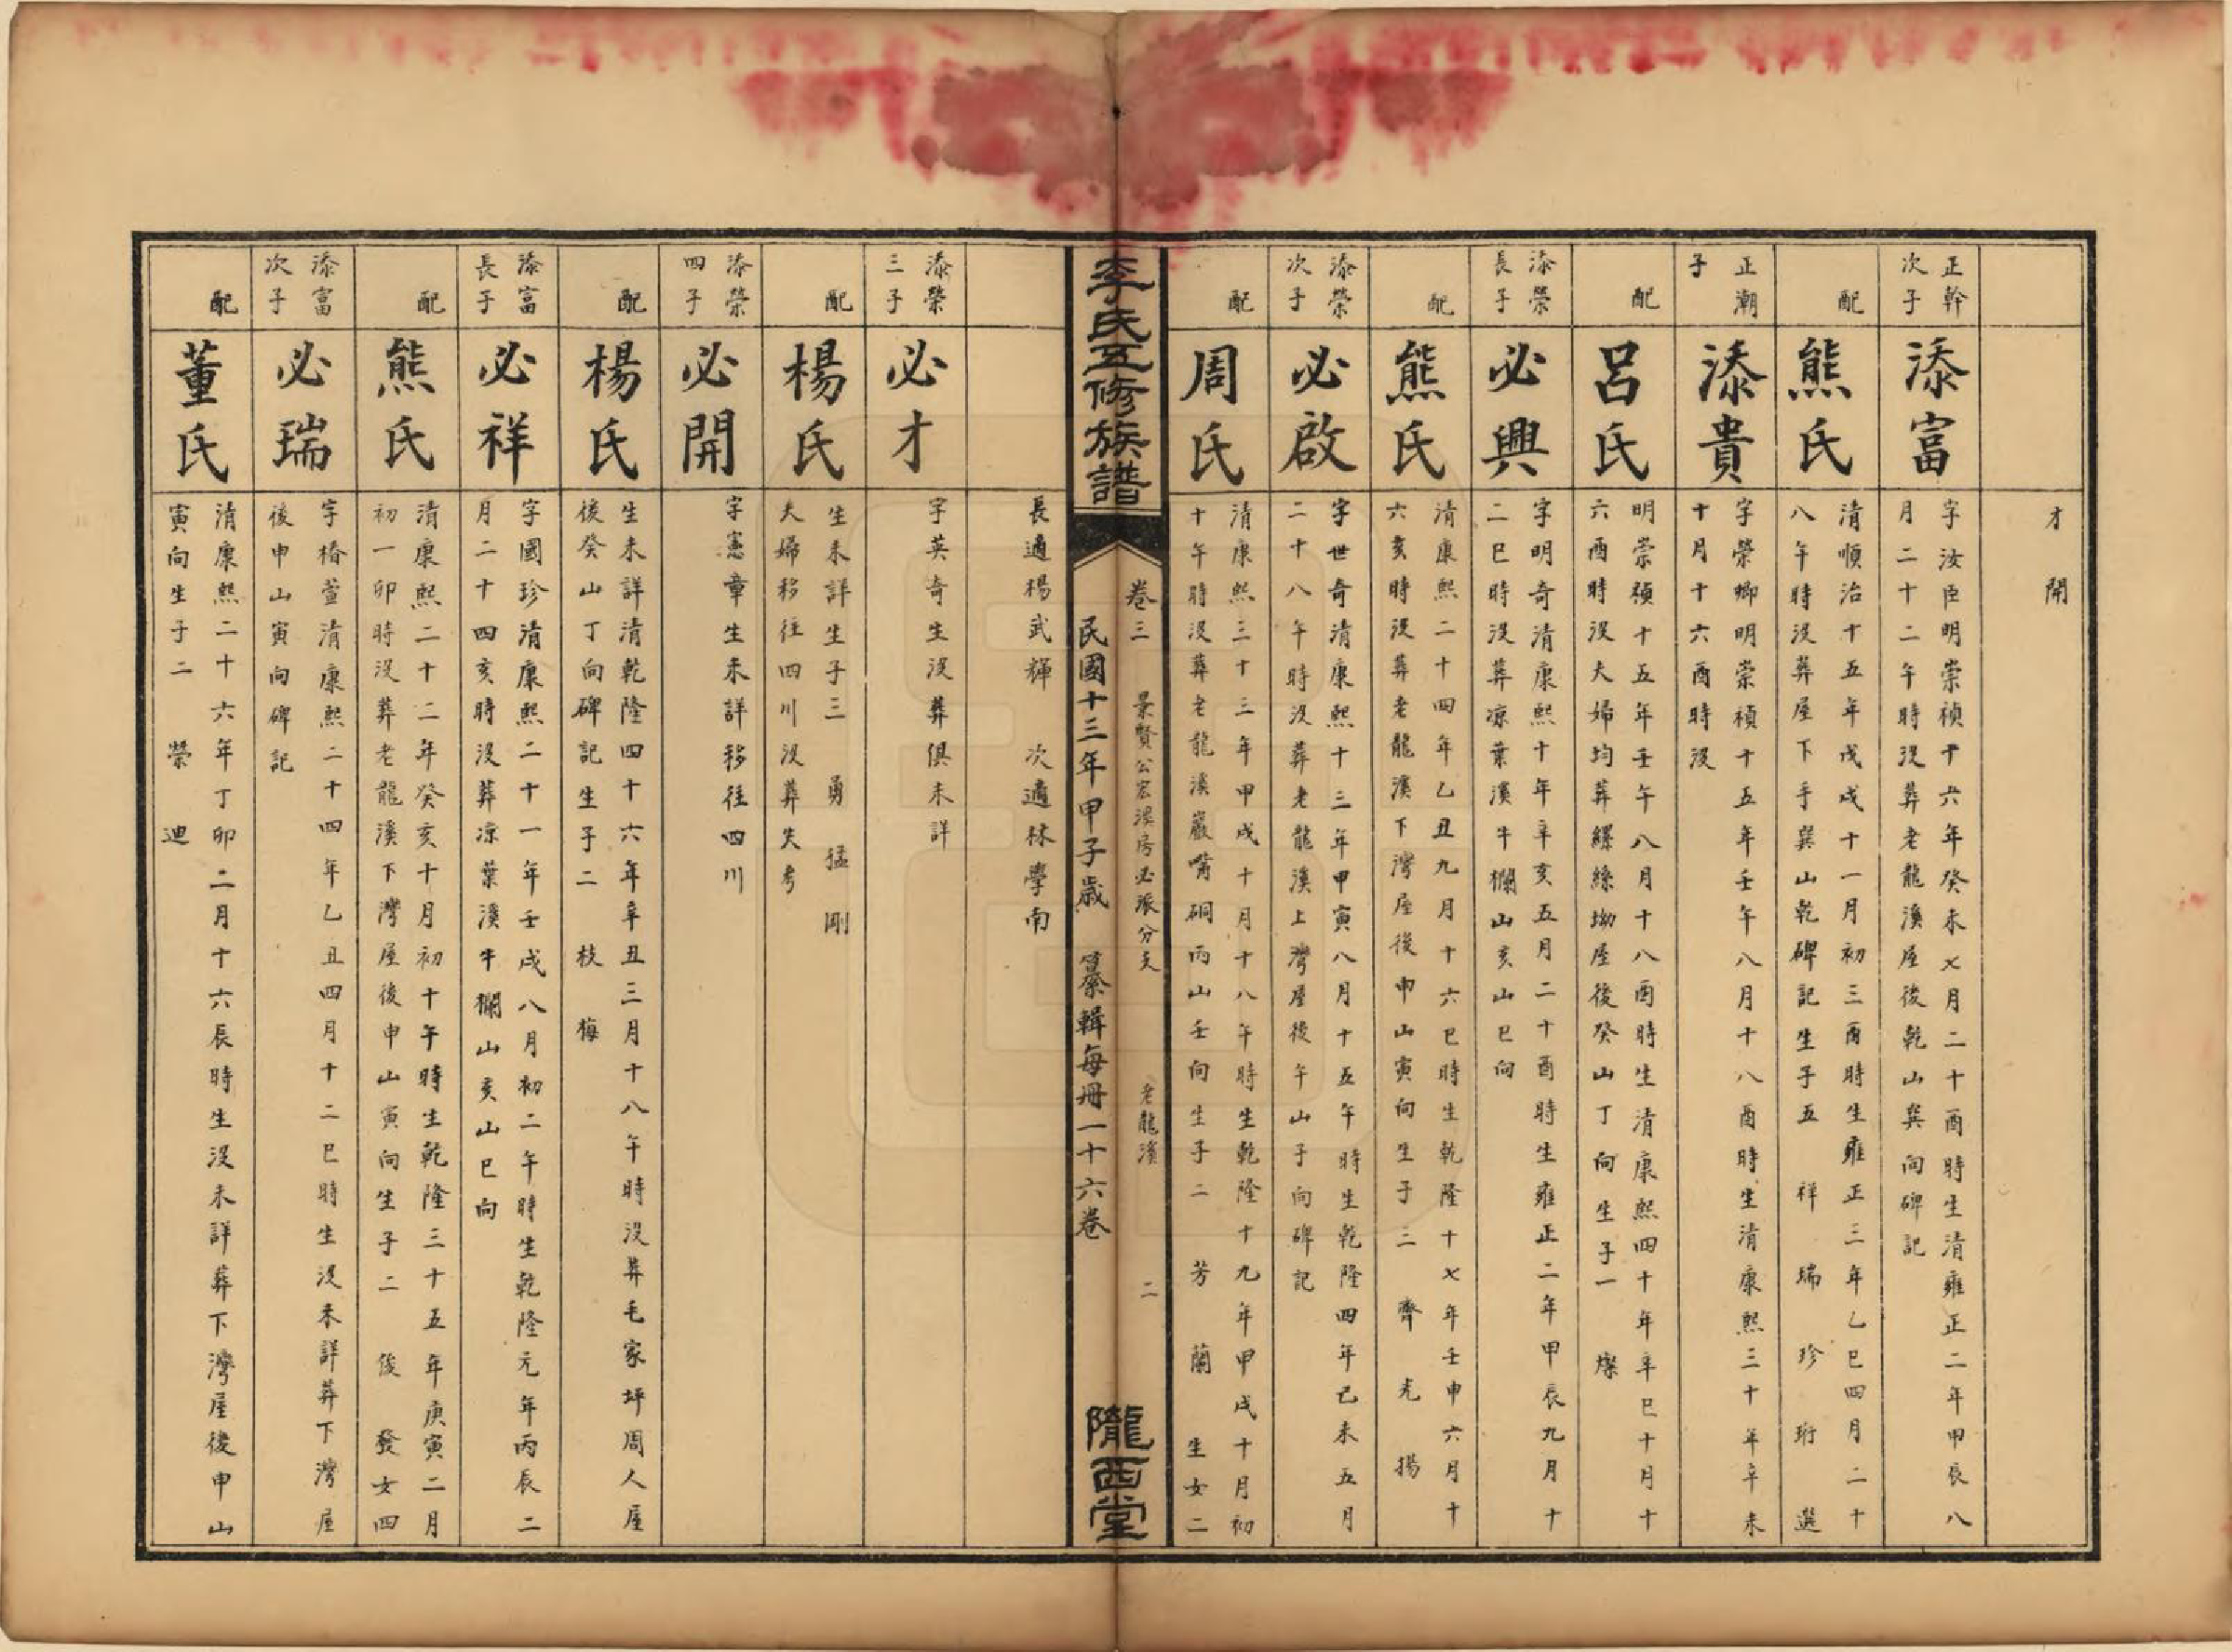 才 開
正幹
次子
添富
字汝臣明崇禎十六年癸未七月二十酉時生清雍正二年甲辰八
月二十二午時沒葬老龍溪屋後乾山巽向碑記
配
熊氏
清順治十五年戊戌十一月初三酉時生雍正三年乙巳四月二十
八午時沒葬屋下手巽山乾碑記生子五 祥 瑞 珍 珩 選
正潮
子
添貴
字榮卿明崇禎十五年壬午八月十八酉時生清康熙三十年辛未
十月十六酉時沒
配
呂氏
明崇禎十五年壬午八月十八酉時生清康熙四十年辛巳十月十
六酉時沒夫婦均葬繅絲坳屋後癸山丁向生子一 燦
添榮
長子
必興
字明奇清康熙十年辛亥五月二十酉時生雍正二年甲辰九月十
二巳時沒葬凉葉溪牛欄山亥山巳向
配
熊氏
清康熙二十四年乙丑九月十六巳時生乾隆十七年壬申六月十
六亥時沒葬老龍溪下灣屋後申山寅向生子三 齊 光 揚
添榮
次子
必啟
字世奇清康熙十三年甲寅八月十五午時生乾隆四年己未五月
二十八午時沒葬老龍溪上灣屋後午山子向碑記
配
周氏
清康熙三十三年甲戌十月十八午時生乾隆十九年甲戌十月初
十午時沒葬老龍溪巖嘴硐丙山壬向生子二 芳 蘭 生女二
李氏互修族譜
卷三 景賢公宏滉房必派分支 老龍溪 二
民國十三年甲子歲 纂輯每冊一十六卷
隴西堂
長適楊武輝 次適林學南
添榮
三子
必才
字英奇生沒葬俱未詳
配
楊氏
生未詳生子三 勇 猛 剛
夫婦移往四川沒葬失考
添榮
四子
必開
字憲章生未詳移往四川
配
楊氏
生未詳清乾隆四十六年辛丑三月十八午時沒葬毛家坪周人屋
後癸山丁向碑記生子二 枝 梅
添富
長子
必祥
字國珍清康熙二十一年壬戌八月初二午時生乾隆元年丙辰二
月二十四亥時沒葬凉葉溪牛欄山亥山巳向
配
熊氏
清康熙二十二年癸亥十月初十午時生乾隆三十五年庚寅二月
初一卯時沒葬老龍溪下灣屋後申山寅向生子二 後 發女四
添富
次子
必瑞
字椿萱清康熙二十四年乙丑四月十二巳時生沒未詳葬下灣屋
後申山寅向碑記
配
董氏
清康熙二十六年丁卯二月十六辰時生沒未詳葬下灣屋後申山
寅向生子二 榮 迪